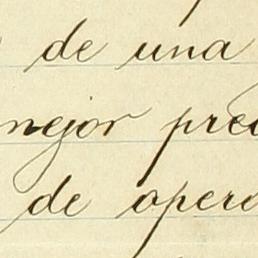 de una
mejor prec
de opera